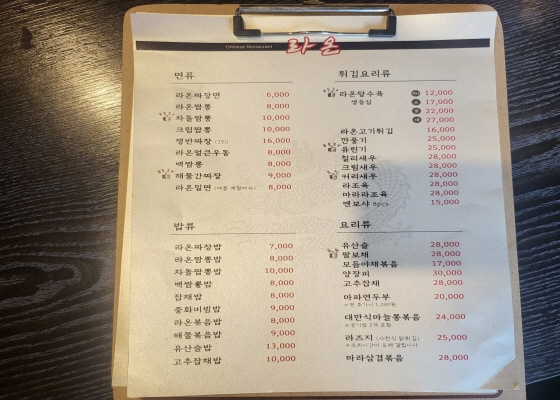 Chinese Restaurant 라온
면류
라온짜장면 6,000
라온짬뽕 8,000
차돌짬뽕 10,000
크림짬뽕 10,000
쟁반짜장 (2인) 16,000
라온얼큰우동 8,000
백짬뽕 8,000
해물간짜장 9,000
라온밀면 (여름 계절메뉴) 8,000
밥류
라온짜장밥 7,000
라온짬뽕밥 8,000
차돌짬뽕밥 10,000
백짬뽕밥 8,000
잡채밥 8,000
중화비빔밥 9,000
라온볶음밥 8,000
해물볶음밥 9,000
유산슬밥 13,000
고추잡채밥 10,000
튀김요리류
라온탕수육 12,000
생등심 소 17,000
중 22,000
대 27,000
라온고기튀김 16,000
깐풍기 25,000
유린기 25,000
칠리새우 28,000
크림새우 28,000
커리새우 28,000
라조육 28,000
마라라조육 28,000
멘보샤 8pcs 15,000
요리류
유산슬 28,000
팔보채 28,000
모듬야채볶음 17,000
양장피 30,000
고추잡채 28,000
마파연두부 20,000
대만식마늘쫑볶음 24,000
라즈지 (사천식 닭튀김) 25,000
※조리시간이 오래 걸립니다
마라삼겹볶음 28,000